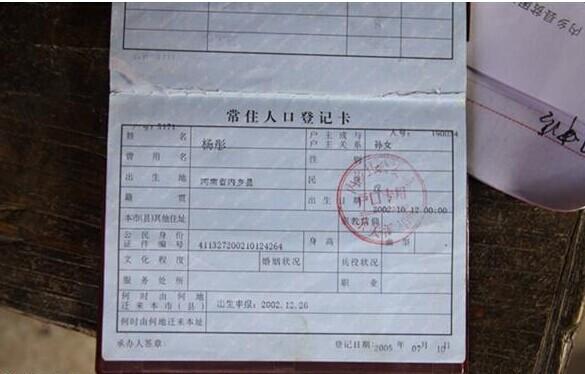 常住人口登记卡
户号：5171 人号：190034
姓名 杨彤 户主或与户主关系 孙女
曾用名 性别
出生地 河南省内乡县 民
籍贯 出生日期 2002.10.12 00:00
本市(县)其他住址 宗教信仰
公民身份证件编号 411327200210124264 身高
文化程度 婚姻状况 兵役状况
服务处所 职业
何时由何地迁来本市(县) 出生申报：2002.12.26
何时由何地迁来本址
承办人签章： 登记日期：2005 年 07 月 10 日
户口专用